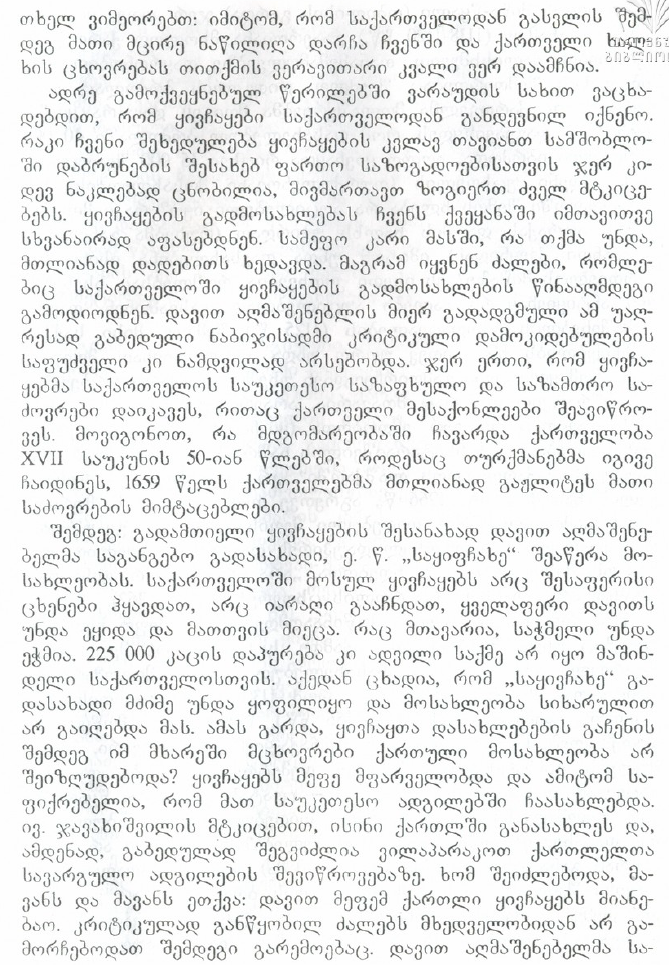 თხელ ვიმეორებთ: იმიტომ, რომ საქართველოდან გასვლის შემ-
დეგ მათი მცირე ნაწილიღა დარჩა ჩვენში და ქართველი ხალ-
ხის ცხოვრებას თითქმის ვერავითარი კვალი ვერ დაამჩნია.
ადრე გამოქვეყნებულ წერილებში ვარაუდის სახით ვაცხა-
დებდით, რომ ყივჩაყები საქართველოდან განდევნილ იქნენო.
რაკი ჩვენი შეხედულება ყივჩაყების კვლავ თავიანთ სამშობლო-
ში დაბრუნების შესახებ ფართო საზოგადოებისათვის ჯერ კი-
დევ ნაკლებად ცნობილია, მივმართავთ ზოგიერთ ძველ მტკიცე-
ბებს. ყივჩაყების გადმოსახლებას ჩვენს ქვეყანაში იმთავითვე
სხვანაირად აფასებდნენ. სამეფო კარი მასში, რა თქმა უნდა,
მთლიანად დადებითს ხედავდა. მაგრამ იყვნენ ძალები, რომლე-
ბიც საქართველოში ყივჩაყების გადმოსახლების წინააღმდეგი
გამოდიოდნენ. დავით აღმაშენებლის მიერ გადადგმული ამ უაღ-
რესად გაბედული ნაბიჯისადმი კრიტიკული დამოკიდებულების
საფუძველი კი ნამდვილად არსებობდა. ჯერ ერთი, რომ ყივჩა-
ყებმა საქართველოს საუკეთესო საზაფხულო და საზამთრო სა-
ძოვრები დაიკავეს, რითაც ქართველი მესაქონლეები შეავიწრო-
ვეს. მოვიგონოთ, რა მდგომარეობაში ჩავარდა ქართველობა
XVII საუკუნის 50-იან წლებში, როდესაც თურქმანებმა იგივე
ჩაიდინეს, 1659 წელს ქართველებმა მთლიანად გაჟლიტეს მათი
საძოვრების მიმტაცებლები.
შემდეგ: გადამთიელი ყივჩაყების შესანახად დავით აღმაშენე-
ბელმა საგანგებო გადასახადი, ე. წ. „საყიფჩახე“ შეაწერა მო-
სახლეობას. საქართველოში მოსულ ყივჩაყებს არც შესაფერისი
ცხენები ჰყავდათ, არც იარაღი გააჩნდათ, ყველაფერი დავითს
უნდა ეყიდა და მათთვის მიეცა. რაც მთავარია, საჭმელი უნდა
ეჭმია. 225 000 კაცის დაპურება კი ადვილი საქმე არ იყო მაშინ-
დელი საქართველოსთვის. აქედან ცხადია, რომ „საყივჩახე“ გა-
დასახადი მძიმე უნდა ყოფილიყო და მოსახლეობა სიხარულით
არ გაიღებდა მას. ამას გარდა, ყივჩაყთა დასახლებების გაჩენის
შემდეგ იმ მხარეში მცხოვრები ქართული მოსახლეობა არ
შეიზღუდებოდა? ყივჩაყებს მეფე მფარველობდა და ამიტომ სა-
ფიქრებელია, რომ მათ საუკეთესო ადგილებში ჩაასახლებდა.
ივ. ჯავახიშვილის მტკიცებით, ისინი ქართლში განასახლეს და,
ამდენად, გაბედულად შეგვიძლია ვილაპარაკოთ ქართლელთა
სავარგულო ადგილების შევიწროვებაზე. ხომ შეიძლებოდა, მა-
ვანს და მავანს ეთქვა: დავით მეფემ ქართლი ყივჩაყებს მიანე-
ბაო. კრიტიკულად განწყობილ ძალებს მხედველობიდან არ გა-
მორჩებოდათ შემდეგი გარემოებაც. დავით აღმაშენებელმა სა-